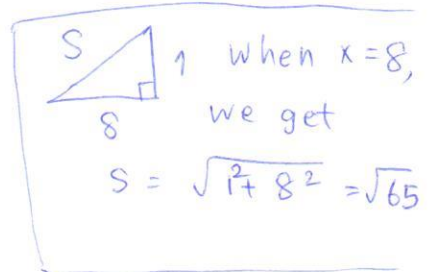 S 1 when x = 8,
8 we get
S = √(1² + 8²) = √65